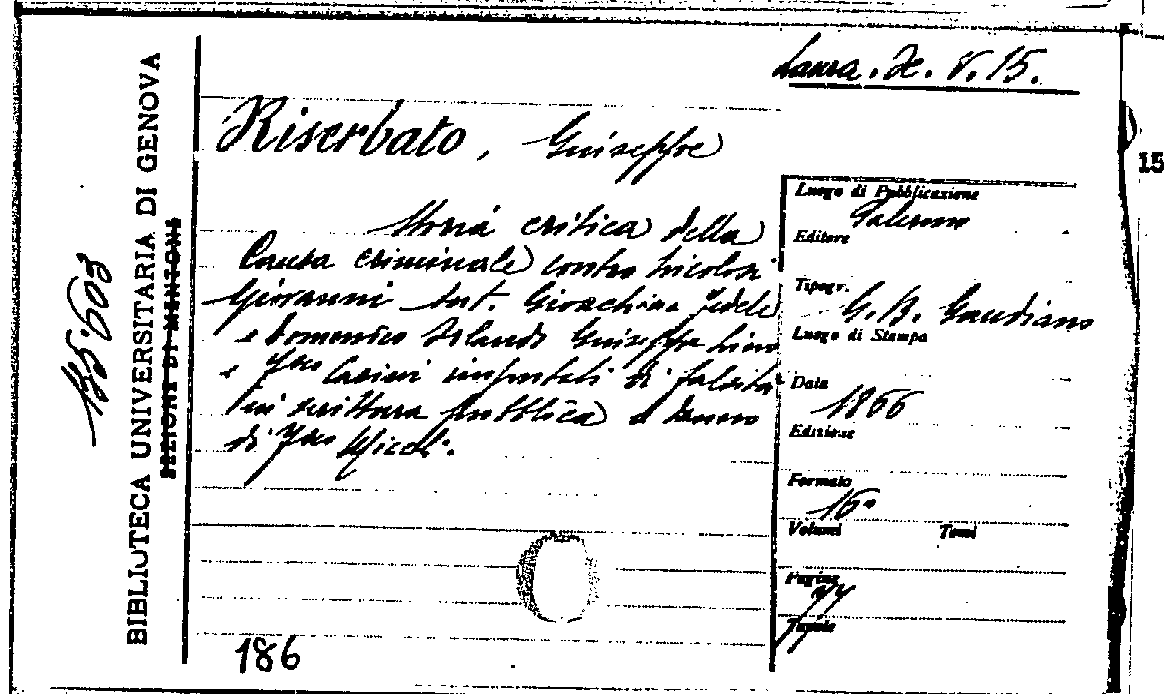 Laura. H. V. 15.
Riserbato, Giuseppe
15
Storia critica della
Causa criminale contro Nicolosi
Giovanni Ant. Gioachino Fedele
e Domenico Orlando Giuseppe
e Fco imputati di falsità
in scrittura pubblica a danno
di Fco Miceli.
Luogo di Pubblicazione
Palermo
Editore
Tipogr.
G. B. Gaudiano
Luogo di Stampa
Data
1866
Edizione
Formato
16°
Volumi Tomi
Pagine
77
Tavole
186
BIBLIOTECA UNIVERSITARIA DI GENOVA